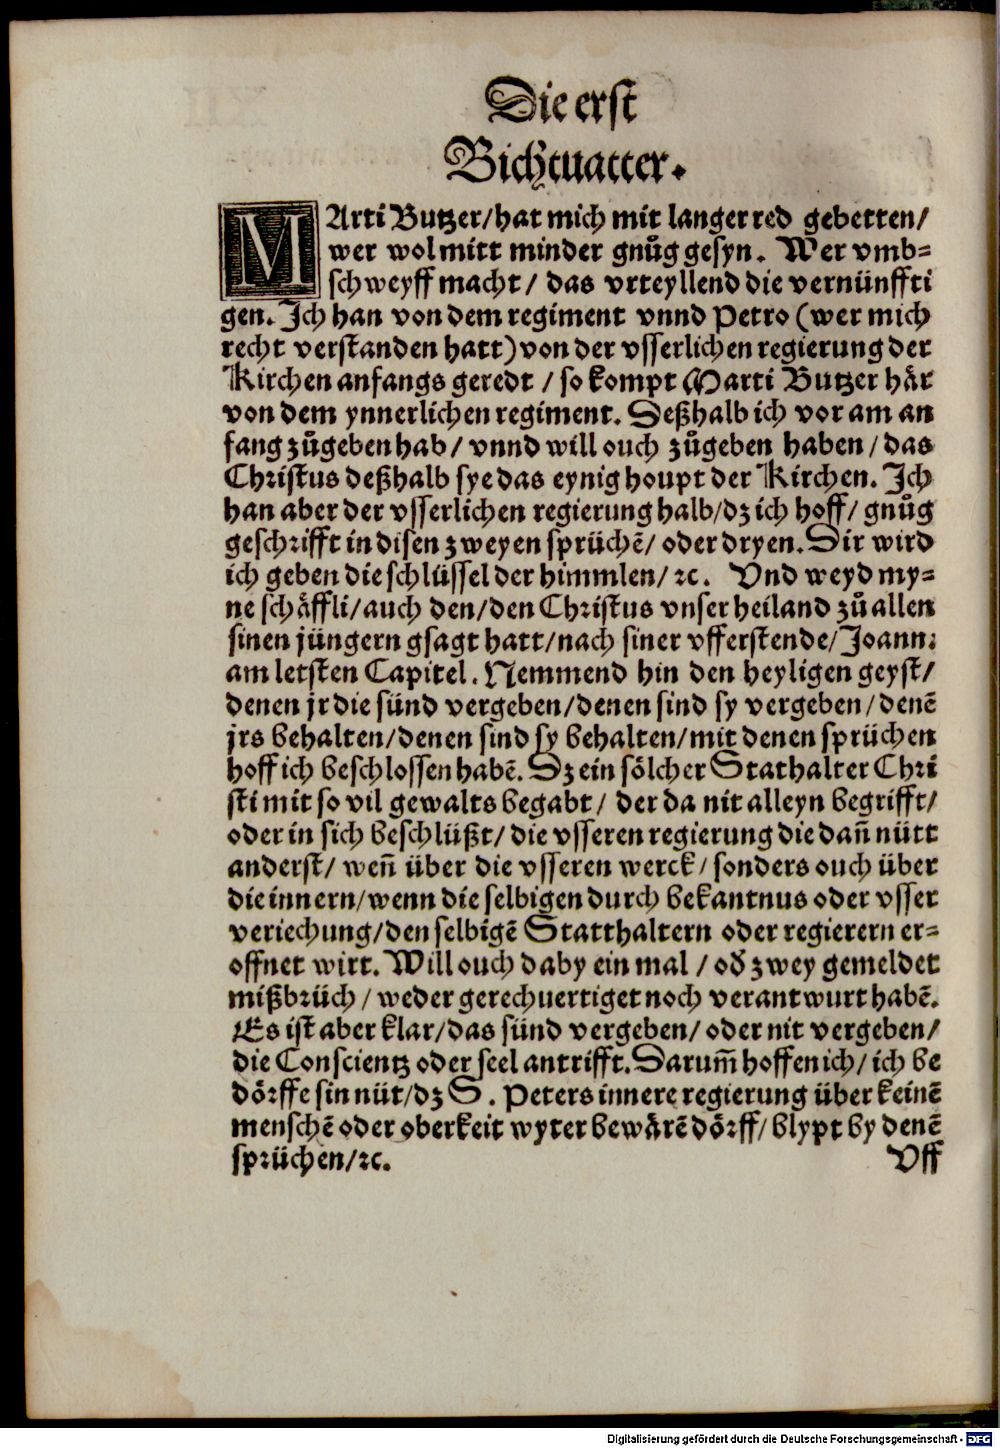 Die erst
Bichtuatter.
MArti Butzer/hat mich mit langer red gebetten/
wer wol mitt minder gnůg gesyn. Wer vmb-
schweyff macht/ das vrteyllend die vernünffti
gen. Ich han von dem regiment vnnd Petro (wer mich
recht verstanden hatt) von der vsserlichen regierung der
Kirchen anfangs geredt / so kompt Marti Butzer här
von dem ynnerlichen regiment. Deßhalb ich vor am an
fang zůgeben hab/ vnnd will ouch zůgeben haben/das
Christus deßhalb sye das eynig houpt der Kirchen. Ich
han aber der vsserlichen regierung halb/dz ich hoff/ gnůg
geschrifft in disen zweyen sprüchē/ oder dryen. Dir wird
ich geben die schlüssel der himmlen/ ꝛc. Vnd weyd my-
ne schäffli/auch den/den Christus vnser heiland zů allen
sinen jüngern gsagt hatt/nach siner vfferstende/Joann:
am letsten Capitel. Nemmend hin den heyligen geyst/
denen jr die sünd vergeben/denen sind sy vergeben/denē
jrs behalten/denen sind sy behalten/mit denen sprüchen
hoff ich beschlossen habē. Dz ein sölcher Stathalter Chri
sti mit so vil gewalts begabt/ der da nit alleyn begrifft/
oder in sich beschlüßt/ die vsseren regierung die dañ nütt
anderst/ weñ über die vsseren werck/ sonders ouch über
die innern/wenn die selbigen durch bekantnus oder vsser
veriechung/den selbigē Statthaltern oder regierern er-
offnet wirt. Will ouch daby ein mal / oď zwey gemeldet
mißbrüch / weder gerechuertiget noch verantwurt habē.
Es ist aber klar/das sünd vergeben/ oder nit vergeben/
die Conscientz oder seel antrifft. Darum̃ hoffen ich/ ich be
dörffe sin nüt/dz S. Peters innere regierung über keinē
menschē oder oberkeit wyter bewärē dörff/ blypt by denē
sprüchen/ꝛc.
Vff
Digitalisierung gefördert durch die Deutsche Forschungsgemeinschaft - DFG